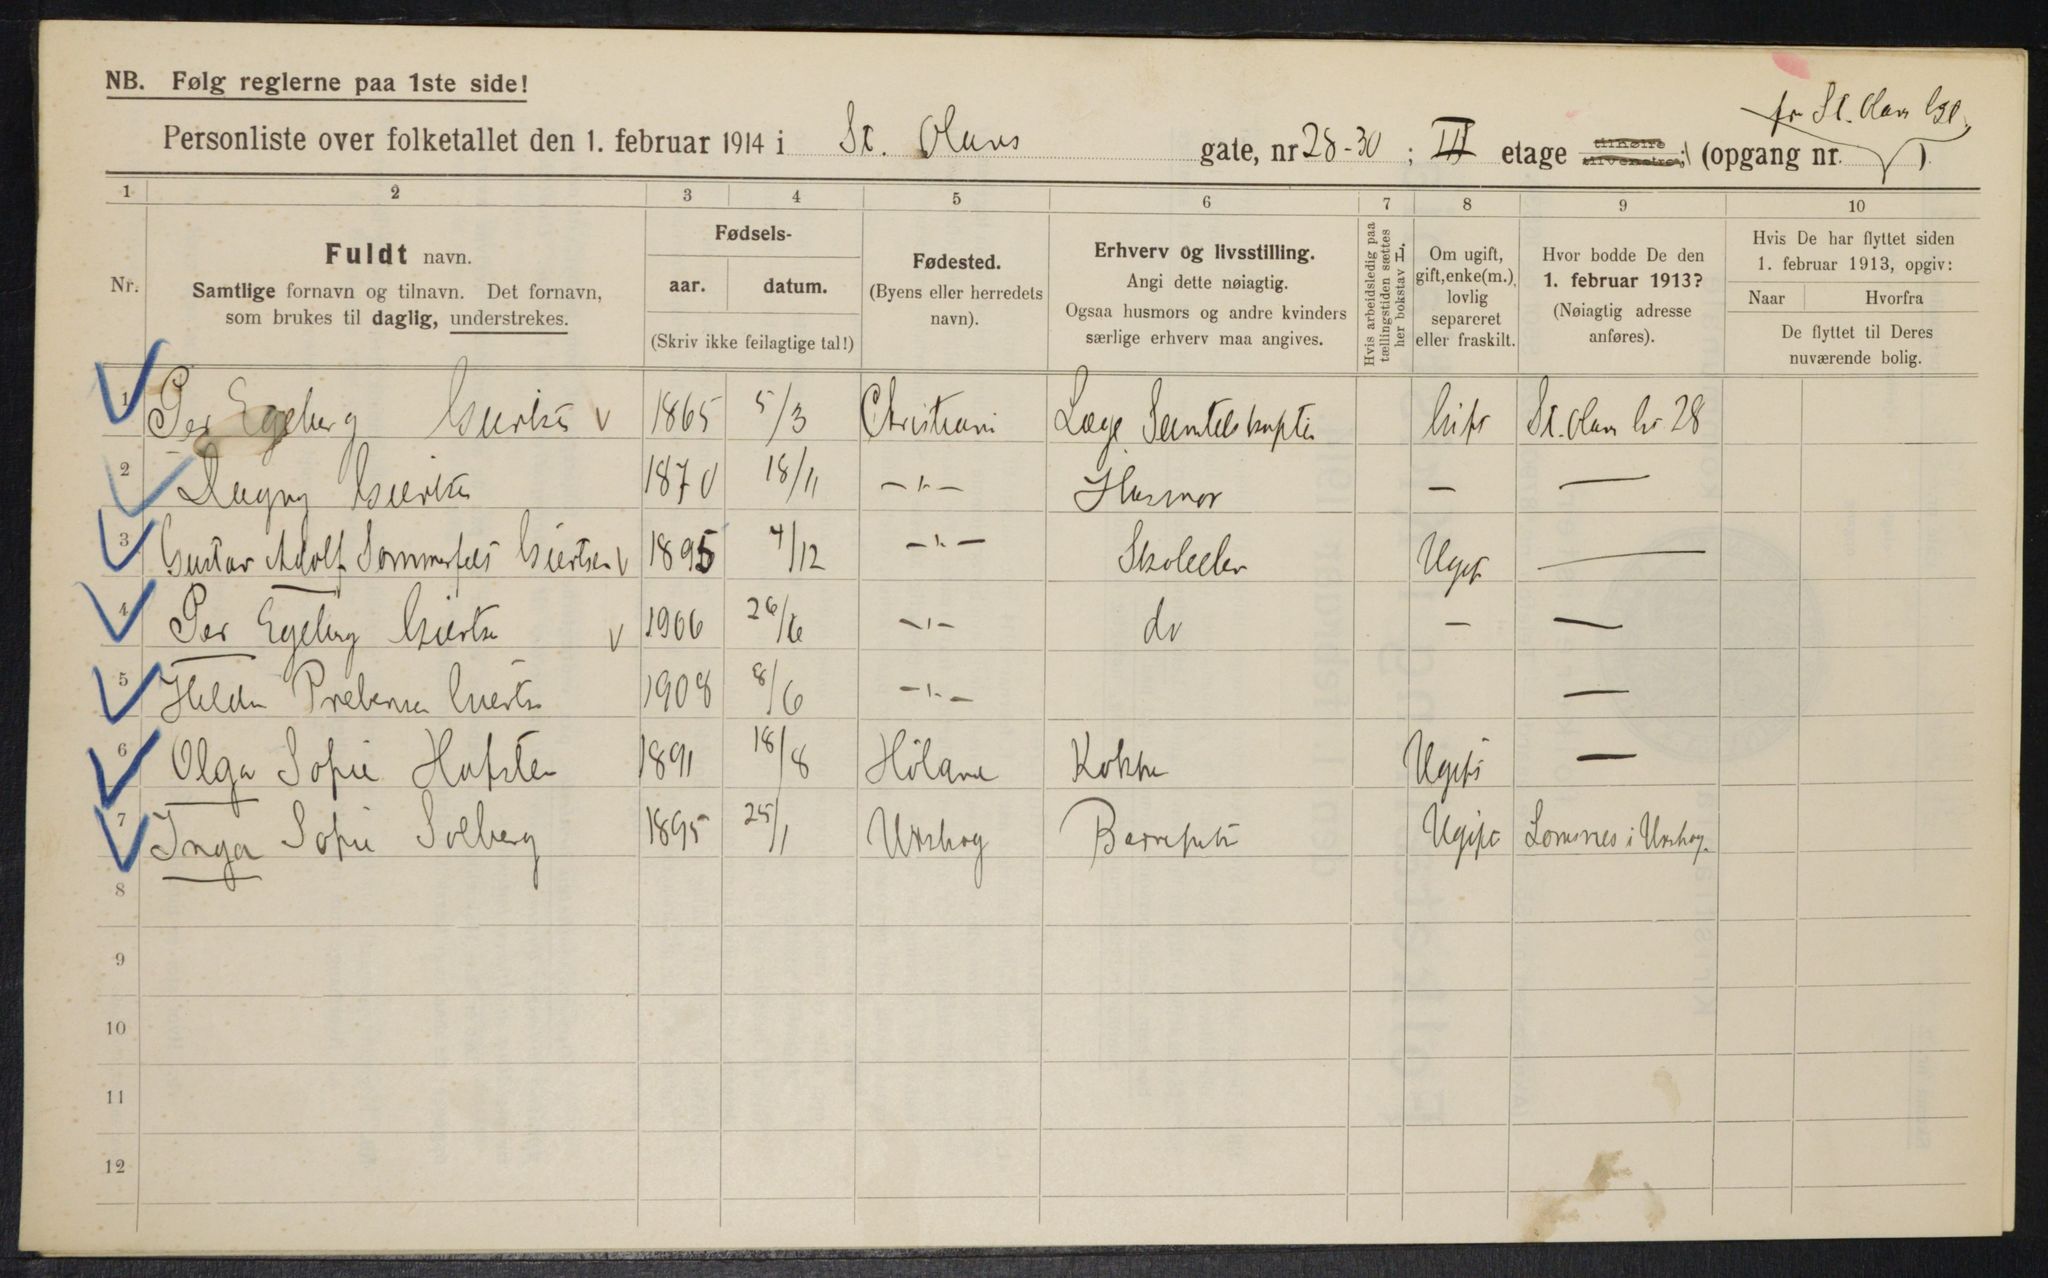 NB. Følg reglerne paa 1ste side!
fr St. Olavs
Personliste over folketallet den 1. februar 1914 i St. Olavs gate, nr 28-30; III etage tilhøire tilvenstre; (opgang nr. )
1 2 3 4 5 6 7 8 9 10
Nr.
Fuldt navn.
Samtlige fornavn og tilnavn. Det fornavn,
som brukes til daglig, understrekes.
Fødsels-
aar. datum.
(Skriv ikke feilagtige tal!)
Fødested.
(Byens eller herredets
navn).
Erhverv og livsstilling.
Angi dette nøiagtig.
Ogsaa husmors og andre kvinders
særlige erhverv maa angives.
Hvis arbeidsledig paa
tællingstiden sættes
her bokstav L.
Om ugift,
gift, enke(m.),
lovlig
separeret
eller fraskilt.
Hvor bodde De den
1. februar 1913?
(Nøiagtig adresse
anføres).
Hvis De har flyttet siden
1. februar 1913, opgiv:
Naar Hvorfra
De flyttet til Deres
nuværende bolig.
1 Per Egeberg Giertsen v 1865 5/3 Christiani Læge Gift St. Olavs Gt 28
2 Dagny Giertsen 1870 18/11 -"- Husmor — —
3 Gustav Adolf Sommerfelt Giertsen v 1895 4/12 -"- Skoleelev Ugift —
4 Per Egeberg Giertsen v 1906 26/6 -"- do — —
5 Hilda Giertsen 1908 8/6 -"- —
6 Olga Sofie Hafsten 1891 18/8 Høland Kokke Ugift —
7 Inga Sofie Solberg 1895 25/1 Urskog Barnepike Ugift i Urskog
8
9
10
11
12